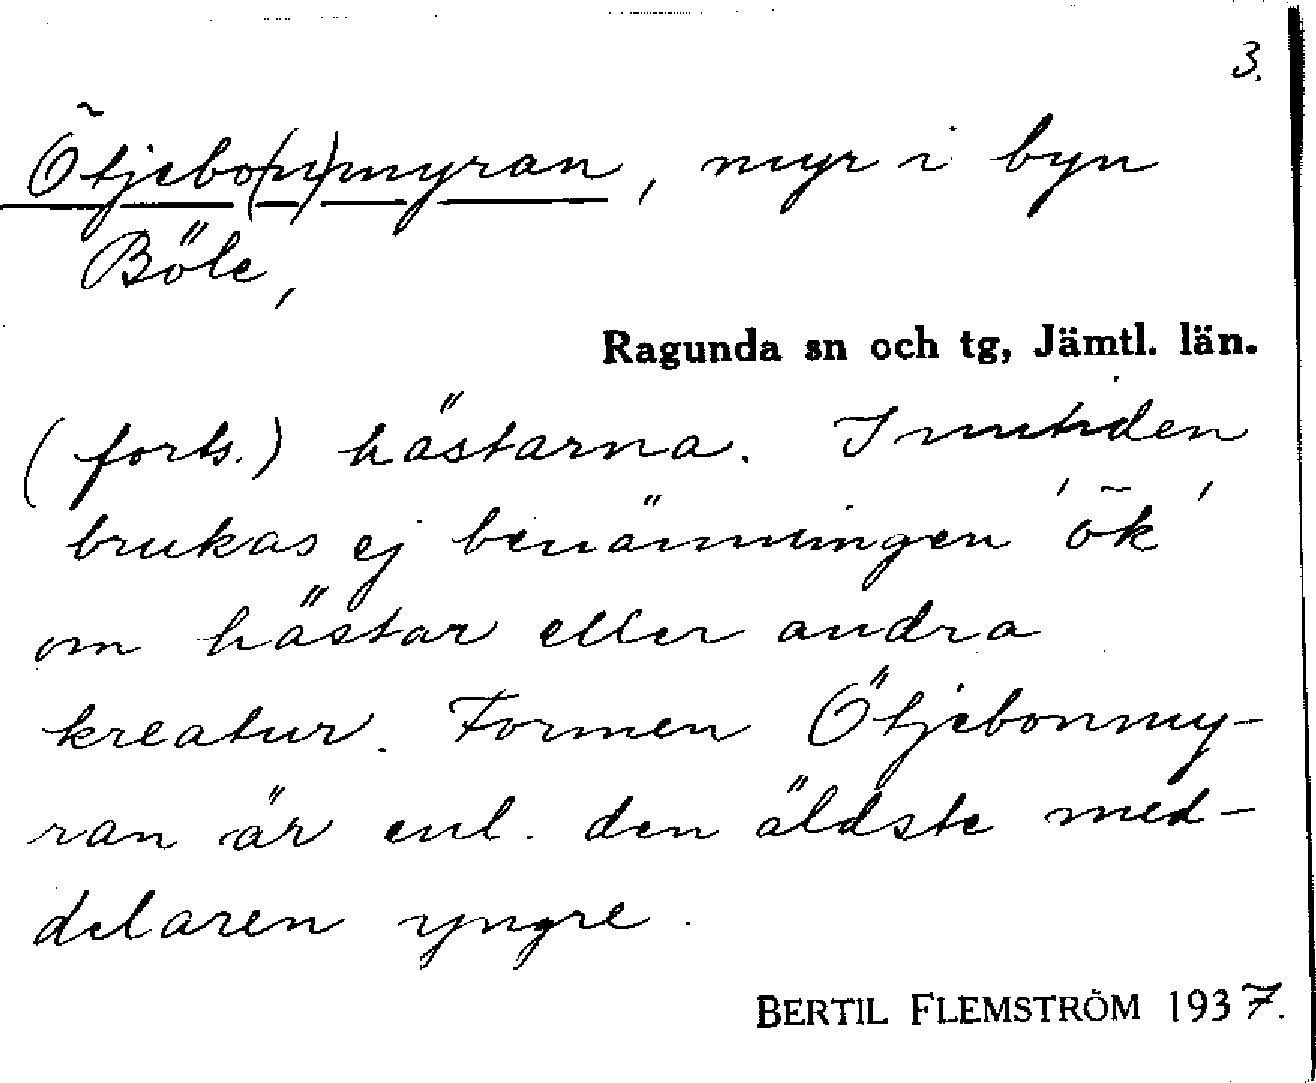 3.
Õtjebo(n)myran, myr i byn
Böle,
Ragunda sn och tg, Jämtl. län.
(forts.) hästarna. I nutiden
brukas ej benämningen 'õk'
om hästar eller andra
kreatur. Formen Ötjebonmy-
ran är enl. den äldste med-
delaren yngre.
BERTIL FLEMSTRÖM 1937.